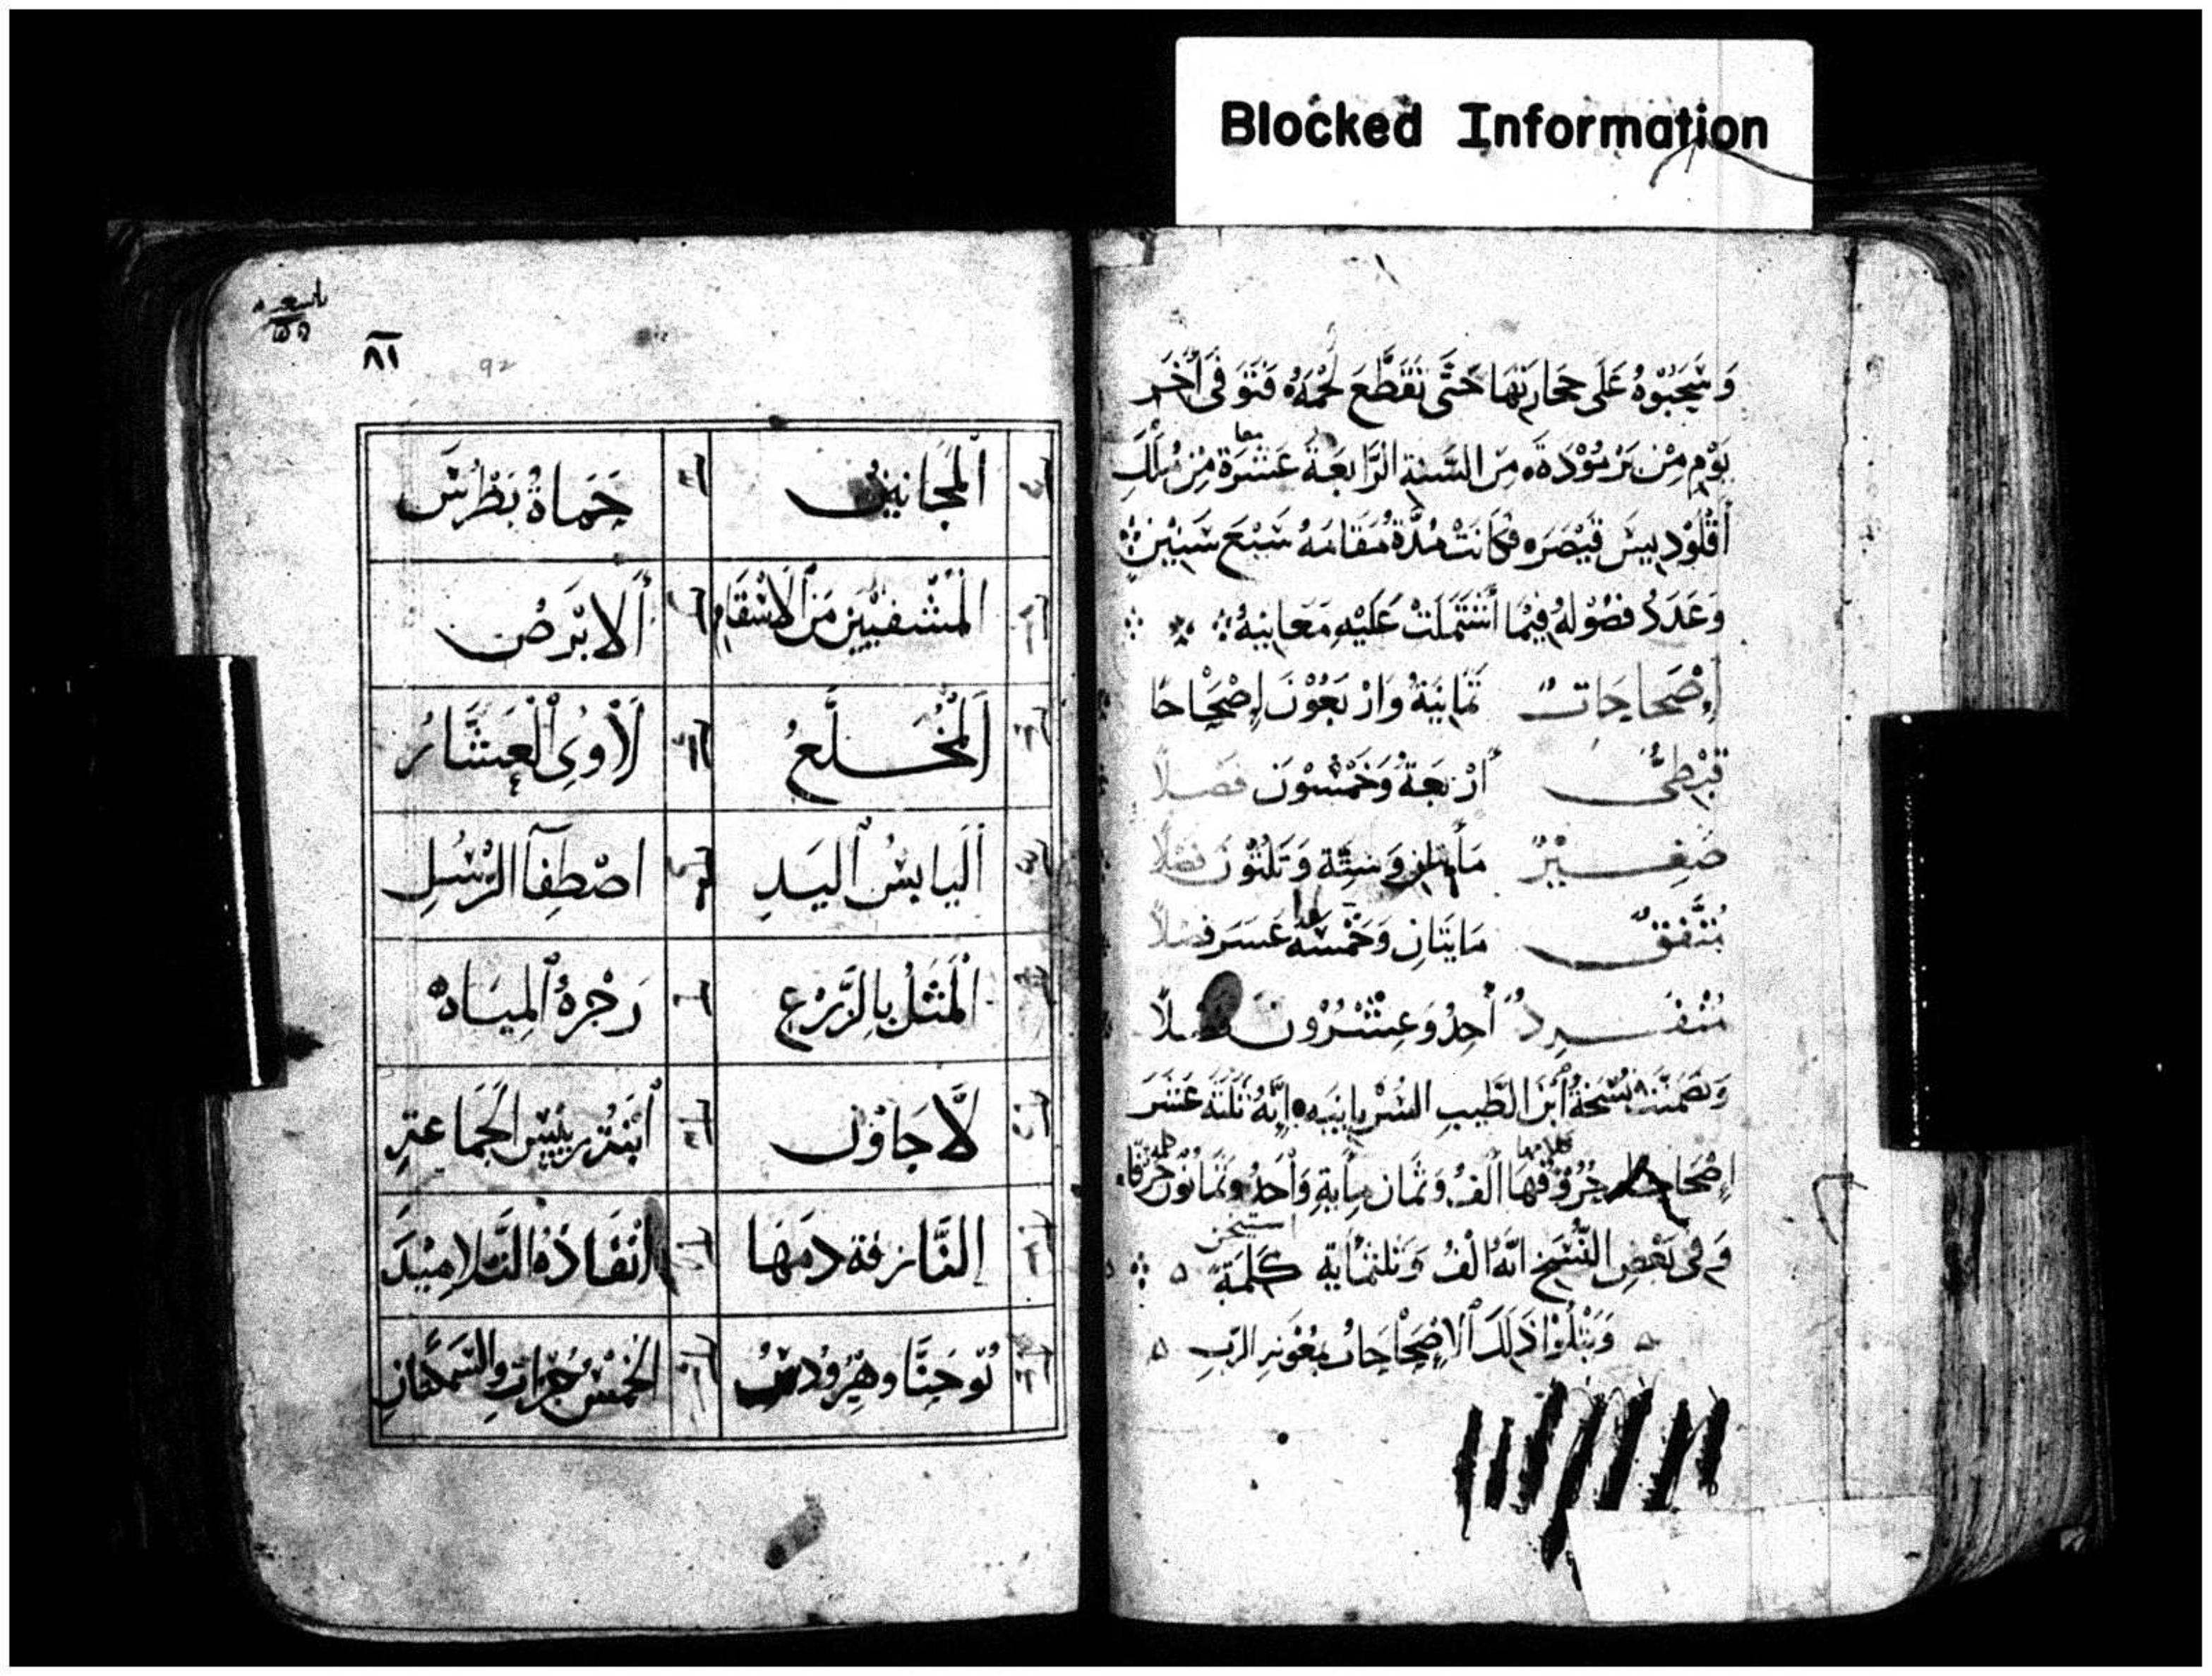 Blocked Information
وَسَحَبُوْهُ عَلَى حِجَارَتِهَا حَتَّى تَقَطَّعَ لَحْمُهُ فَتَوَفَّى فِي آخِر
يَوْمٍ مِنْ بَرْمُوْدَةَ مِنَ السَّنَةِ الرَّابِعَةَ عَشْرَة مِنْ مُلْكِ
أَقْلُوْدِيِيسَ قَيْصَرَ فَكَانَتْ مُدَّةُ مَقَامُهُ سَبْعَ سِنِيْنَ
وَعَدَدُ فصُوْلهُ فِيْمَا أشْتَمَلَتْ عَلَيْهِ مَعَانِيهُ
إِصْحَاحَات ثَمَانِيَةُ وَارْبَعُوْنَ إِصْحَاحًا
قِبْطِيّ أَرْبَعَةُ وَخَمْسُوْنَ فصْلاً
صَغِيْر مَأيتَان وَسِتَّة وَثَلثُوْنَ فصْلاً
مُتَّفِق مَايتَانِ وَخَمْسَة عَسَر فصْلاً
مُنْفَرِد أَحِدُ وَعِشْرُوْن فصلاً
وَتَضَمَّنَتْ نُسْخَةُ أبْنَ الطَّيِب السُّرْيَانِيَه إِنَّهُ ثَلثَة عَشَرَ
إِصْحَاحًا حُرُوْفُهَا أَلْفُ وَثَمَان مِأيَةِ وَأحدُ وَثَمَانُوْنَ حَرْفًا
وَفِي بَعْضِ النُّسَخِ انَّهُ الْفُ وَثلثمَايَة كَلِمَة
وَيَتْلُوْا ذَلِكَ الاِصْحَاحَات بِمَعُوْنَةِ الرَّبِ
٨١
92
ألمَجَانِيْن حَمَاةُ بَطْرُس
المُشْفيِيْن مَن الاسْقَام ألابْرَصُ
اَلْمُخَلَّعُ لَاوِى الْعَشَّارُ
أليَابِسُ اليَدِ اصْطِفَآ الرُّسُلِ
المَثَلُ بِالزَّرْعِ زَجْرهُ المِيَاه
لَّاجَاوُن أبْنَةُ رَئِيْسِ الجَمَاعَةِ
النَّازِفَة دَمَهَا انْفَاذهُ التَّلَامِيْذَ
يُوحَنَّا وهِيْرُوْدسُ الخَمْس خُبْزَاتِ والسَّمَكَتَانِ